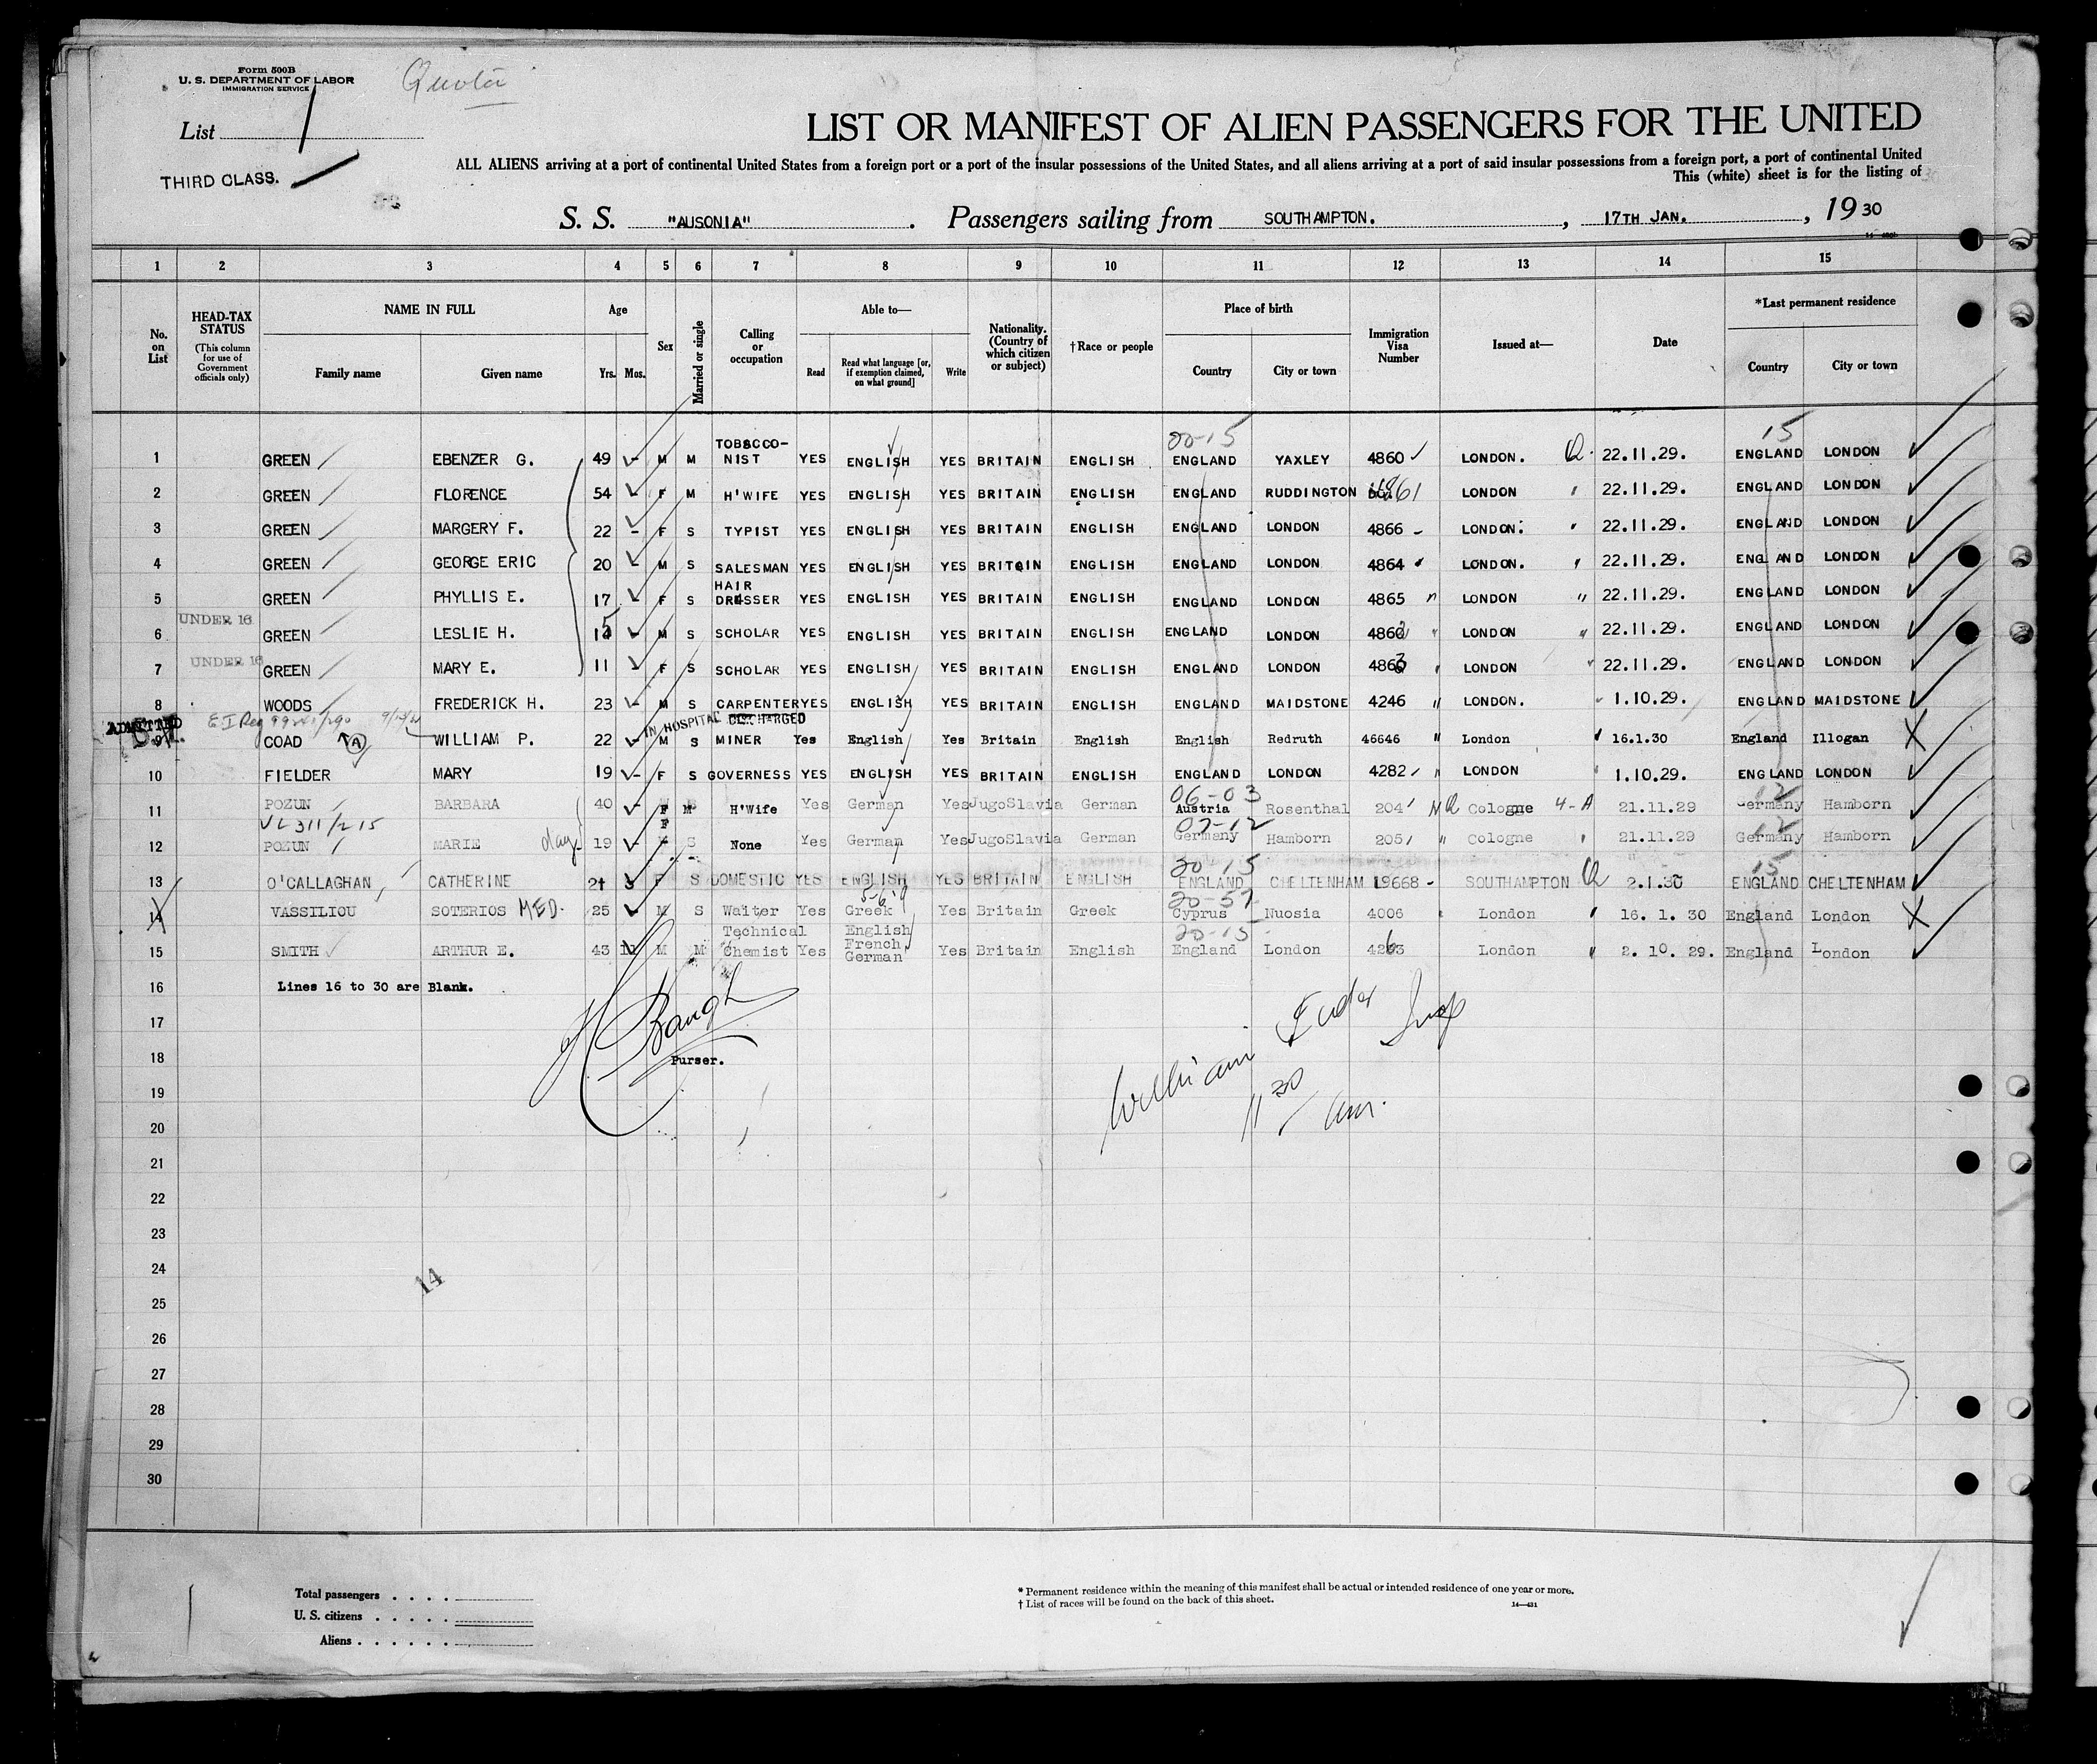 Form 500B
U. S. DEPARTMENT OF LABOR
IMMIGRATION SERVICE
Quota
List 1
THIRD CLASS.
LIST OR MANIFEST OF ALIEN PASSENGERS FOR THE UNITED
ALL ALIENS arriving at a port of continental United States from a foreign port or a port of the insular possessions of the United States, and all aliens arriving at a port of said insular possessions from a foreign port, a port of continental United
This (white) sheet is for the listing of
S. S. "AUSONIA". Passengers sailing from SOUTHAMPTON., 17TH JAN., 1930
1 2 3 4 5 6 7 8 9 10 11 12 13 14 15
No. on List
HEAD-TAX STATUS (This column for use of Government officials only)
NAME IN FULL
Family name Given name
Age
Yrs. Mos.
Sex
Married or single
Calling or occupation
Able to—
Read
Read what language [or, if exemption claimed, on what ground]
Write
Nationality. (Country of which citizen or subject)
†Race or people
Place of birth
Country City or town
Immigration Visa Number
Issued at—
Date
*Last permanent residence
Country City or town
20-15 15
1 GREEN EBENZER G. 49 - M M TOBACCO-NIST YES ENGLISH YES BRITAIN ENGLISH ENGLAND YAXLEY 4860 LONDON. Q. 22.11.29. ENGLAND LONDON
2 GREEN FLORENCE 54 - F M H'WIFE YES ENGLISH YES BRITAIN ENGLISH ENGLAND RUDDINGTON 4861 LONDON " 22.11.29. ENGLAND LONDON
3 GREEN MARGERY F. 22 - F S TYPIST YES ENGLISH YES BRITAIN ENGLISH ENGLAND LONDON 4866 LONDON. " 22.11.29. ENGLAND LONDON
4 GREEN GEORGE ERIC 20 - M S SALESMAN YES ENGLISH YES BRITAIN ENGLISH ENGLAND LONDON 4864 LONDON. " 22.11.29. ENGLAND LONDON
5 GREEN PHYLLIS E. 17 - F S HAIR DRESSER YES ENGLISH YES BRITAIN ENGLISH ENGLAND LONDON 4865 " LONDON " 22.11.29. ENGLAND LONDON
UNDER 16
6 GREEN LESLIE H. 15 - M S SCHOLAR YES ENGLISH YES BRITAIN ENGLISH ENGLAND LONDON 4862 " LONDON " 22.11.29. ENGLAND LONDON
UNDER 16
7 GREEN MARY E. 11 - F S SCHOLAR YES ENGLISH YES BRITAIN ENGLISH ENGLAND LONDON 4863 " LONDON " 22.11.29. ENGLAND LONDON
8 WOODS FREDERICK H. 23 - M S CARPENTER YES ENGLISH YES BRITAIN ENGLISH ENGLAND MAIDSTONE 4246 " LONDON. " 1.10.29. ENGLAND MAIDSTONE
ADMITTED IN HOSPITAL DISCHARGED
9 COAD (A) WILLIAM P. 22 - M S MINER Yes English Yes Britain English English Redruth 46646 " London " 16.1.30 England Illogan X
10 FIELDER MARY 19 - F S GOVERNESS YES ENGLISH YES BRITAIN ENGLISH ENGLAND LONDON 4282 " LONDON " 1.10.29. ENGLAND LONDON
06-03 12
11 POZUN BARBARA 40 - F M H'Wife Yes German Yes JugoSlavia German Austria Rosenthal 204 NQ Cologne 4-A 21.11.29 Germany Hamborn
VL 311/215 07-12 12
12 POZUN MARIE 19 - F S None Yes German Yes JugoSlavia German Germany Hamborn 205 " Cologne " 21.11.29 Germany Hamborn
20-15 15
13 O'CALLAGHAN CATHERINE 21 3 F S DOMESTIC YES ENGLISH YES BRITAIN ENGLISH ENGLAND CHELTENHAM 19668 - SOUTHAMPTON Q 2.1.30 ENGLAND CHELTENHAM
20-57
14 VASSILIOU SOTERIOS MED. 25 - M S Waiter Yes Greek Yes Britain Greek Cyprus Nuosia 4006 London " 16. 1. 30 England London X
20-15
15 SMITH ARTHUR E. 43 11 M M Technical Chemist Yes English French German Yes Britain English England London 4263 London " 2. 10. 29. England London
16 Lines 16 to 30 are Blank.
17
18 Purser.
19
20
21
22
23
24
14
25
26
27
28
29
30
Total passengers
U. S. citizens
Aliens
* Permanent residence within the meaning of this manifest shall be actual or intended residence of one year or more.
† List of races will be found on the back of this sheet.
14—431